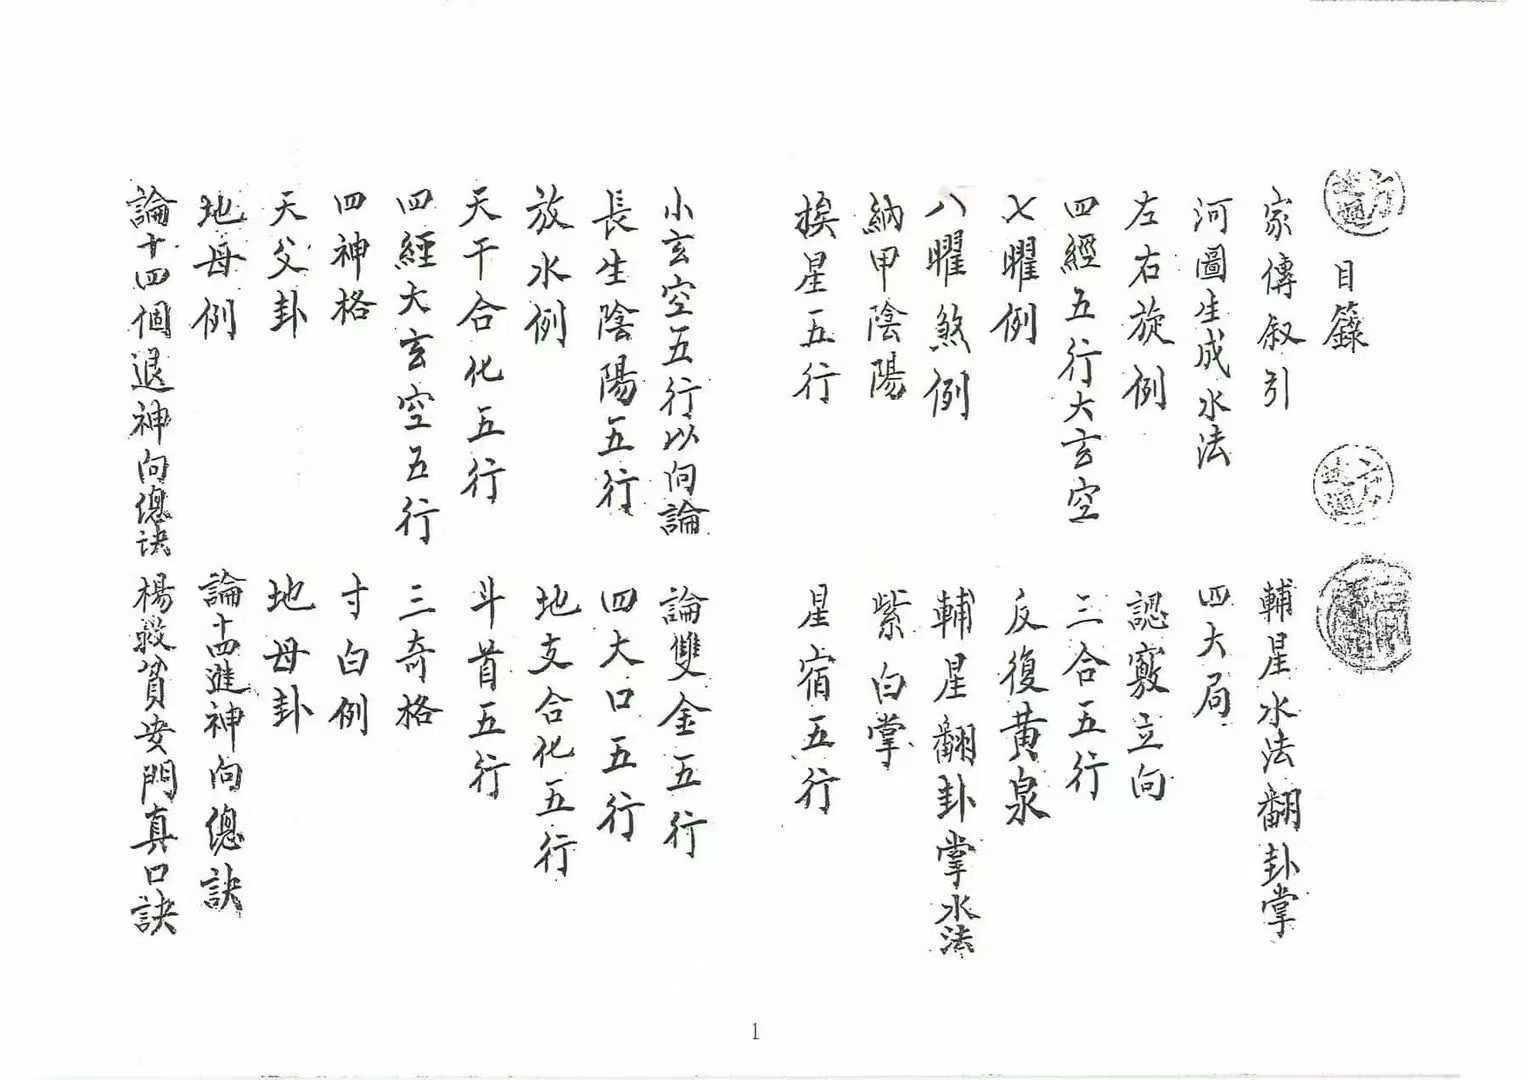 目錄
家傳叙引
輔星水法翻卦掌
河圖生成水法
四大局
左右旋例
認竅立向
四經五行大玄空
三合五行
七曜例
反復黄泉
八曜煞例
輔星翻卦掌水法
納甲陰陽
紫白掌
挨星五行
星宿五行
小玄空五行以向論
論雙金五行
長生陰陽五行
四大口五行
放水例
地支合化五行
天干合化五行
斗首五行
四經大玄空五行
三奇格
四神格
寸白例
天父卦
地母卦
地母例
論十四進神向總訣
論十四個退神向總訣
楊救貧安門真口訣
1